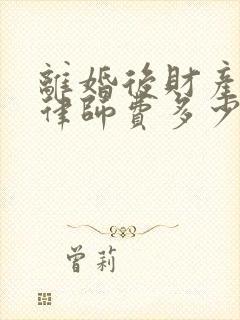 離婚後財產
律師費多少
曾莉